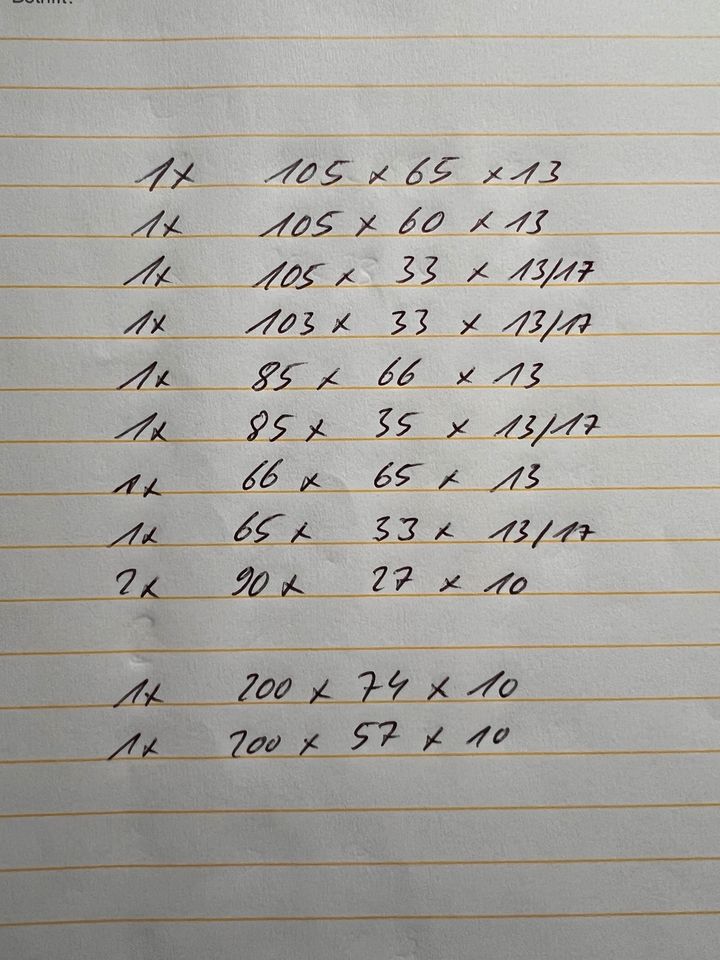 Betrifft:
1x 105 x 65 x 13
1x 105 x 60 x 13
1x 105 x 33 x 13/17
1x 103 x 33 x 13/17
1x 85 x 66 x 13
1x 85 x 35 x 13/17
1x 66 x 65 x 13
1x 65 x 33 x 13/17
2x 90 x 27 x 10
1x 200 x 74 x 10
1x 200 x 57 x 10